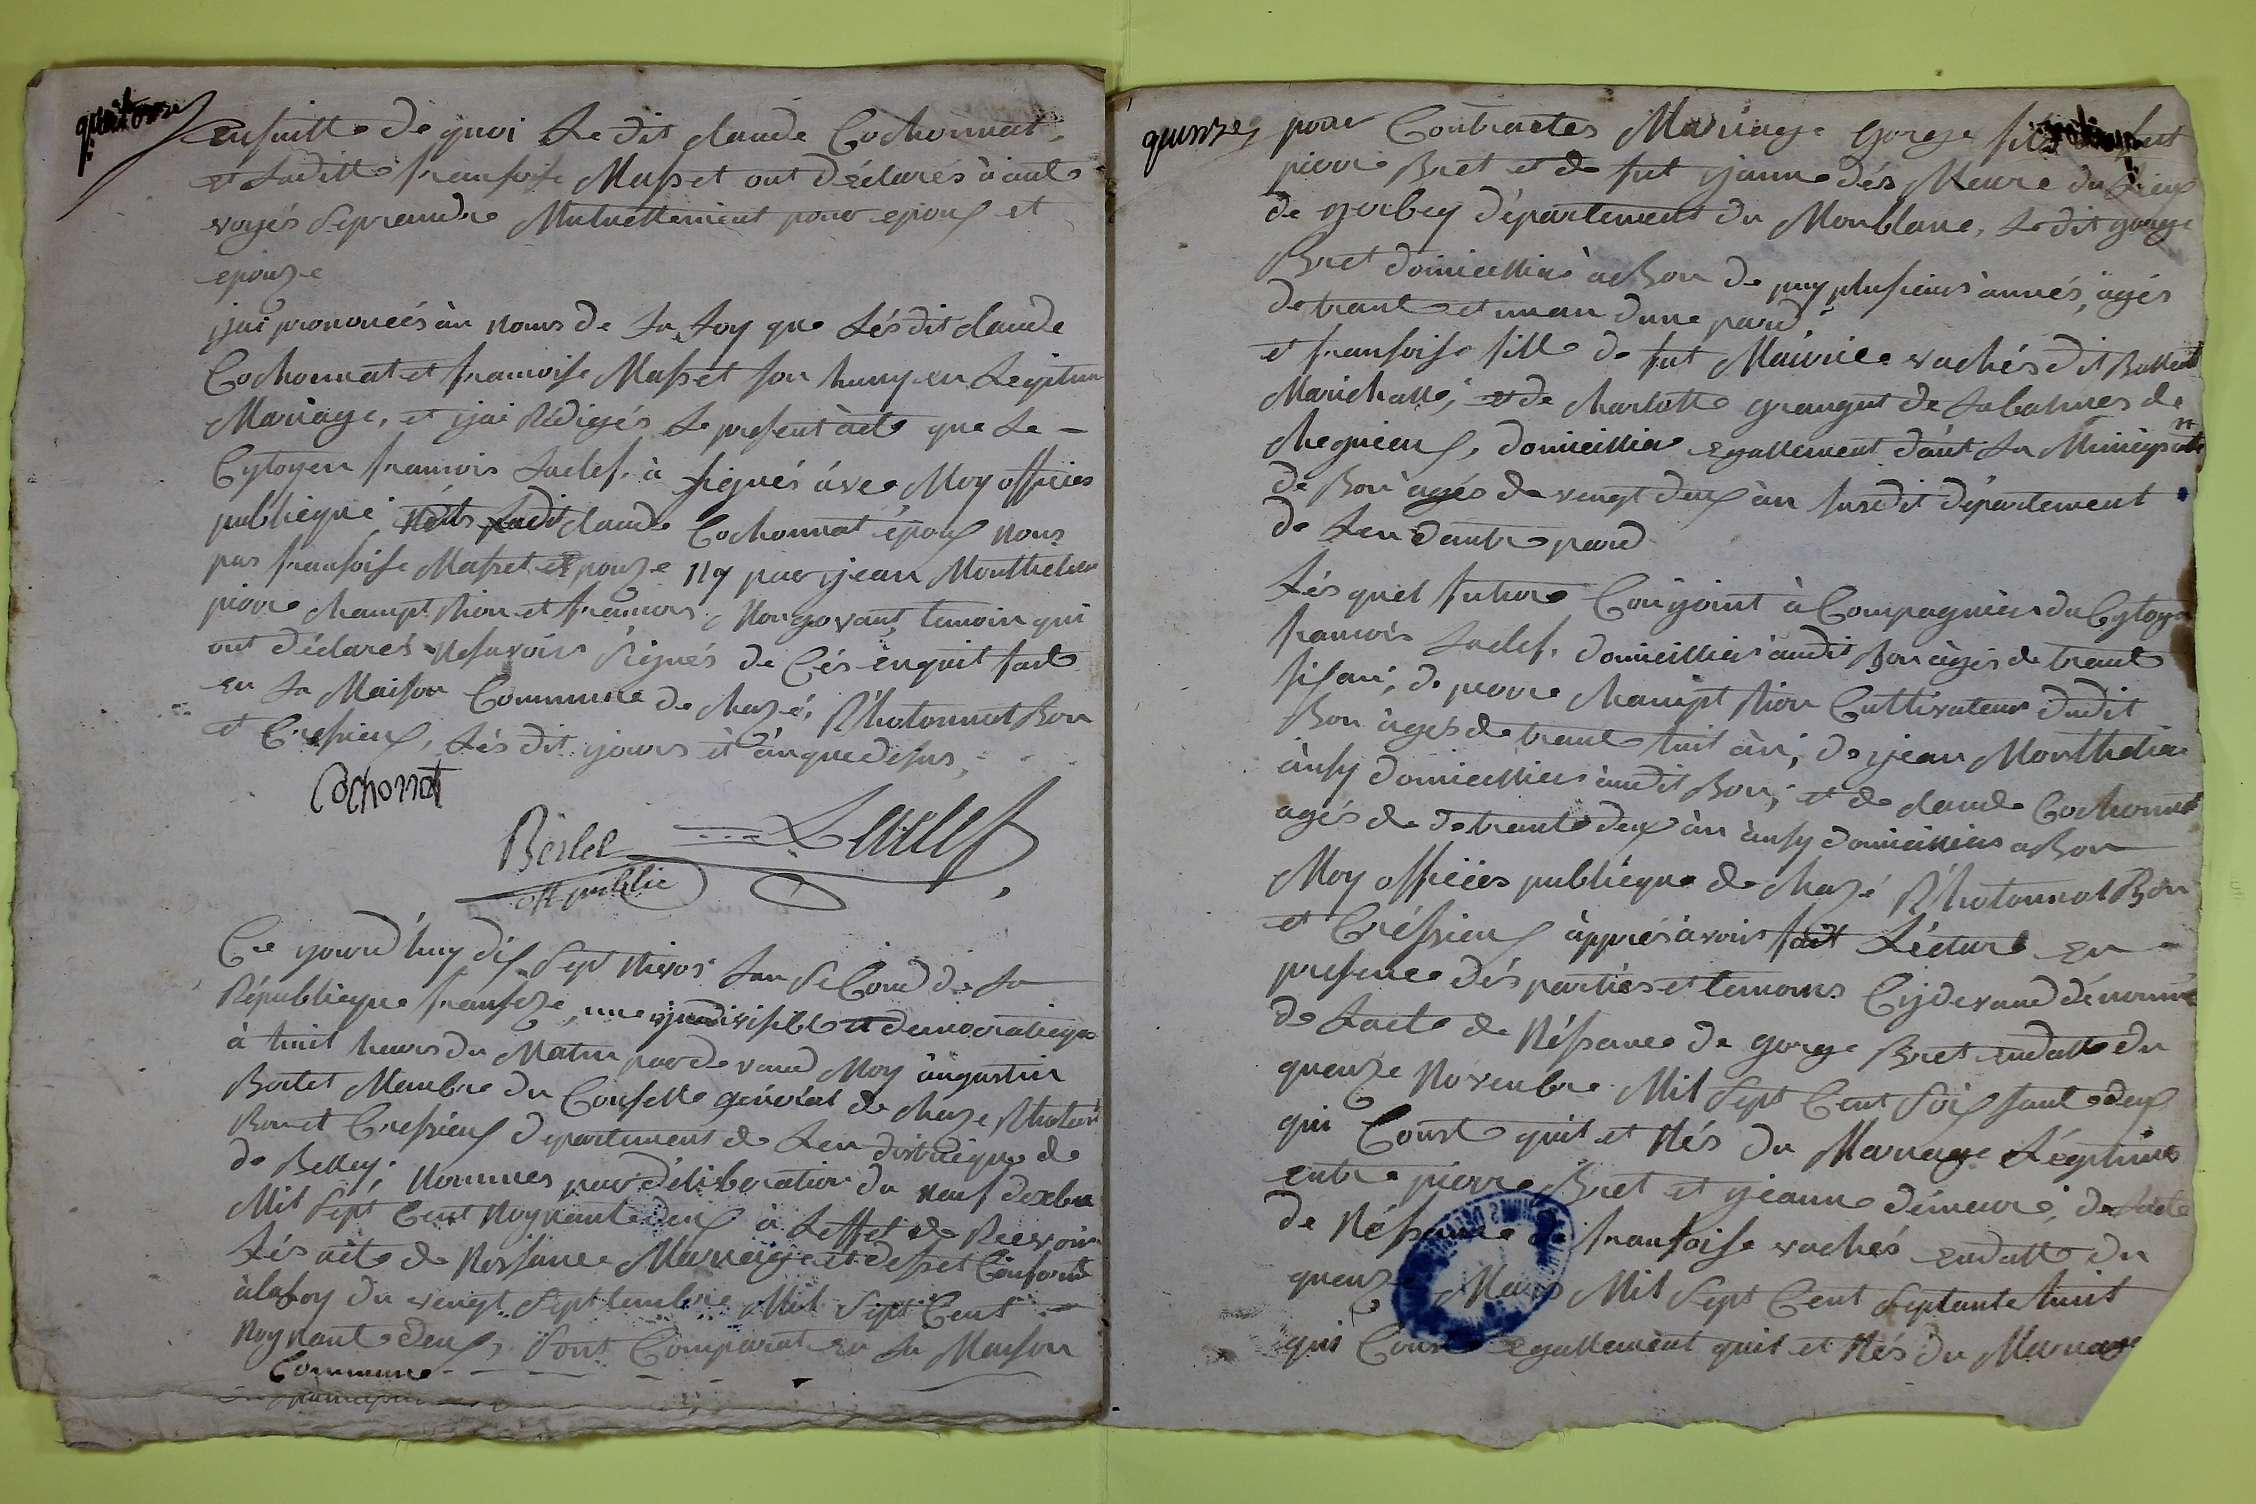 quatorze
ensuitte de quoi Le dit claude Cochonnat
et Laditte fransoise Masset ont déclarés à aute
voyés se prendre Mutuellement pour epoux et
epouze
j'ai prononcés àu noms de La Loy que Lés dit claude
Cochonnat et francoise Masset son huny en Legitim
Mariage, et j'ai Rédigés Le present àcte que Le
Cytoyen francois Laclef à signés àvec Moy officies
publicque, claude Cochonnat époux nons
pas fransoise Masset epouze ny par jean Monthelier
pierre champt Rion et francois temoin qui
ont déclarés ne savoirs signés de Cés enquit fait
en La Maison Commune de chazé, Rhotonnot Bon
et Cressieux, Lés dit jours èt àn que desus,
Cochonnat
Berlet Laclef
off public
Ce jourd'huy dix Sept Nivos Lan Second de La
Républicque fransese, une yndivisible et democraticque
à huit heurs du Matin par de vand Moy àugustin
Berlet Membre du Conselle général de chaze Rhoton
Bon et Cressieux departement de Len districque de
de Belley; Nommes par déliberation du neuf dexbre
Mil Sept Cent Noynante deux à Leffet de Recevoir
Lés àcte de Nessance Mariage et desset Conform
à la Loy du vengt Septtembre Mil Sept Cent
Noynante deux, Sont Comparut en La Maison
Commune
quinze
pour Contractes Mariage Gorge fils fut
pierre Bret et de fut jeanne dés Meure du Lieux
de departement du Monblanc, Le dit gorge
Bret domicillié à Bon de puy plusieurs ànnés, àgés
de trante et un an dune pard
et fransoise fille de fut Maurice vachés dit
Marichalle, et de charlotte granget de La balmes de
chegnieux, domicillia egallement dant La Municipalité
de Bon àgés de vengt deux àn Susdit département
de Len dautre pard
Lés quel future Conjoint à Compagnier du Cytoye
francois Laclef domicilliés àudit Bon àgés de trante
sis an, de pierre champt Rion Cultivateur dudit
Bon àgés de trante huit àn, de jean Monthelié
àusy domicilliés àudit Bon, et de claude Cochonnat
agés de de trante deux àn àusy domicillies a Bon
Moy officiés publicque de chazé Rhotonnot Bon
et Créssieux àpprés àvoirs fait Lécture en
presence dés partiés et temoins Cy devand dénommé
de Lacte de Néssance de gorge Bret endatte du
quenze Novembre Mil Sept Cent Soix sante deux
qui Conste quil et Nés du Mariage Légitime
entre pierre Bret et jeanne démeure, de Lacte
de Néssance de fransoise vachés endatte du
quenze Mars Mil Sept Cent Septante huit
qui Conste egallement quil et Nés du Mariage